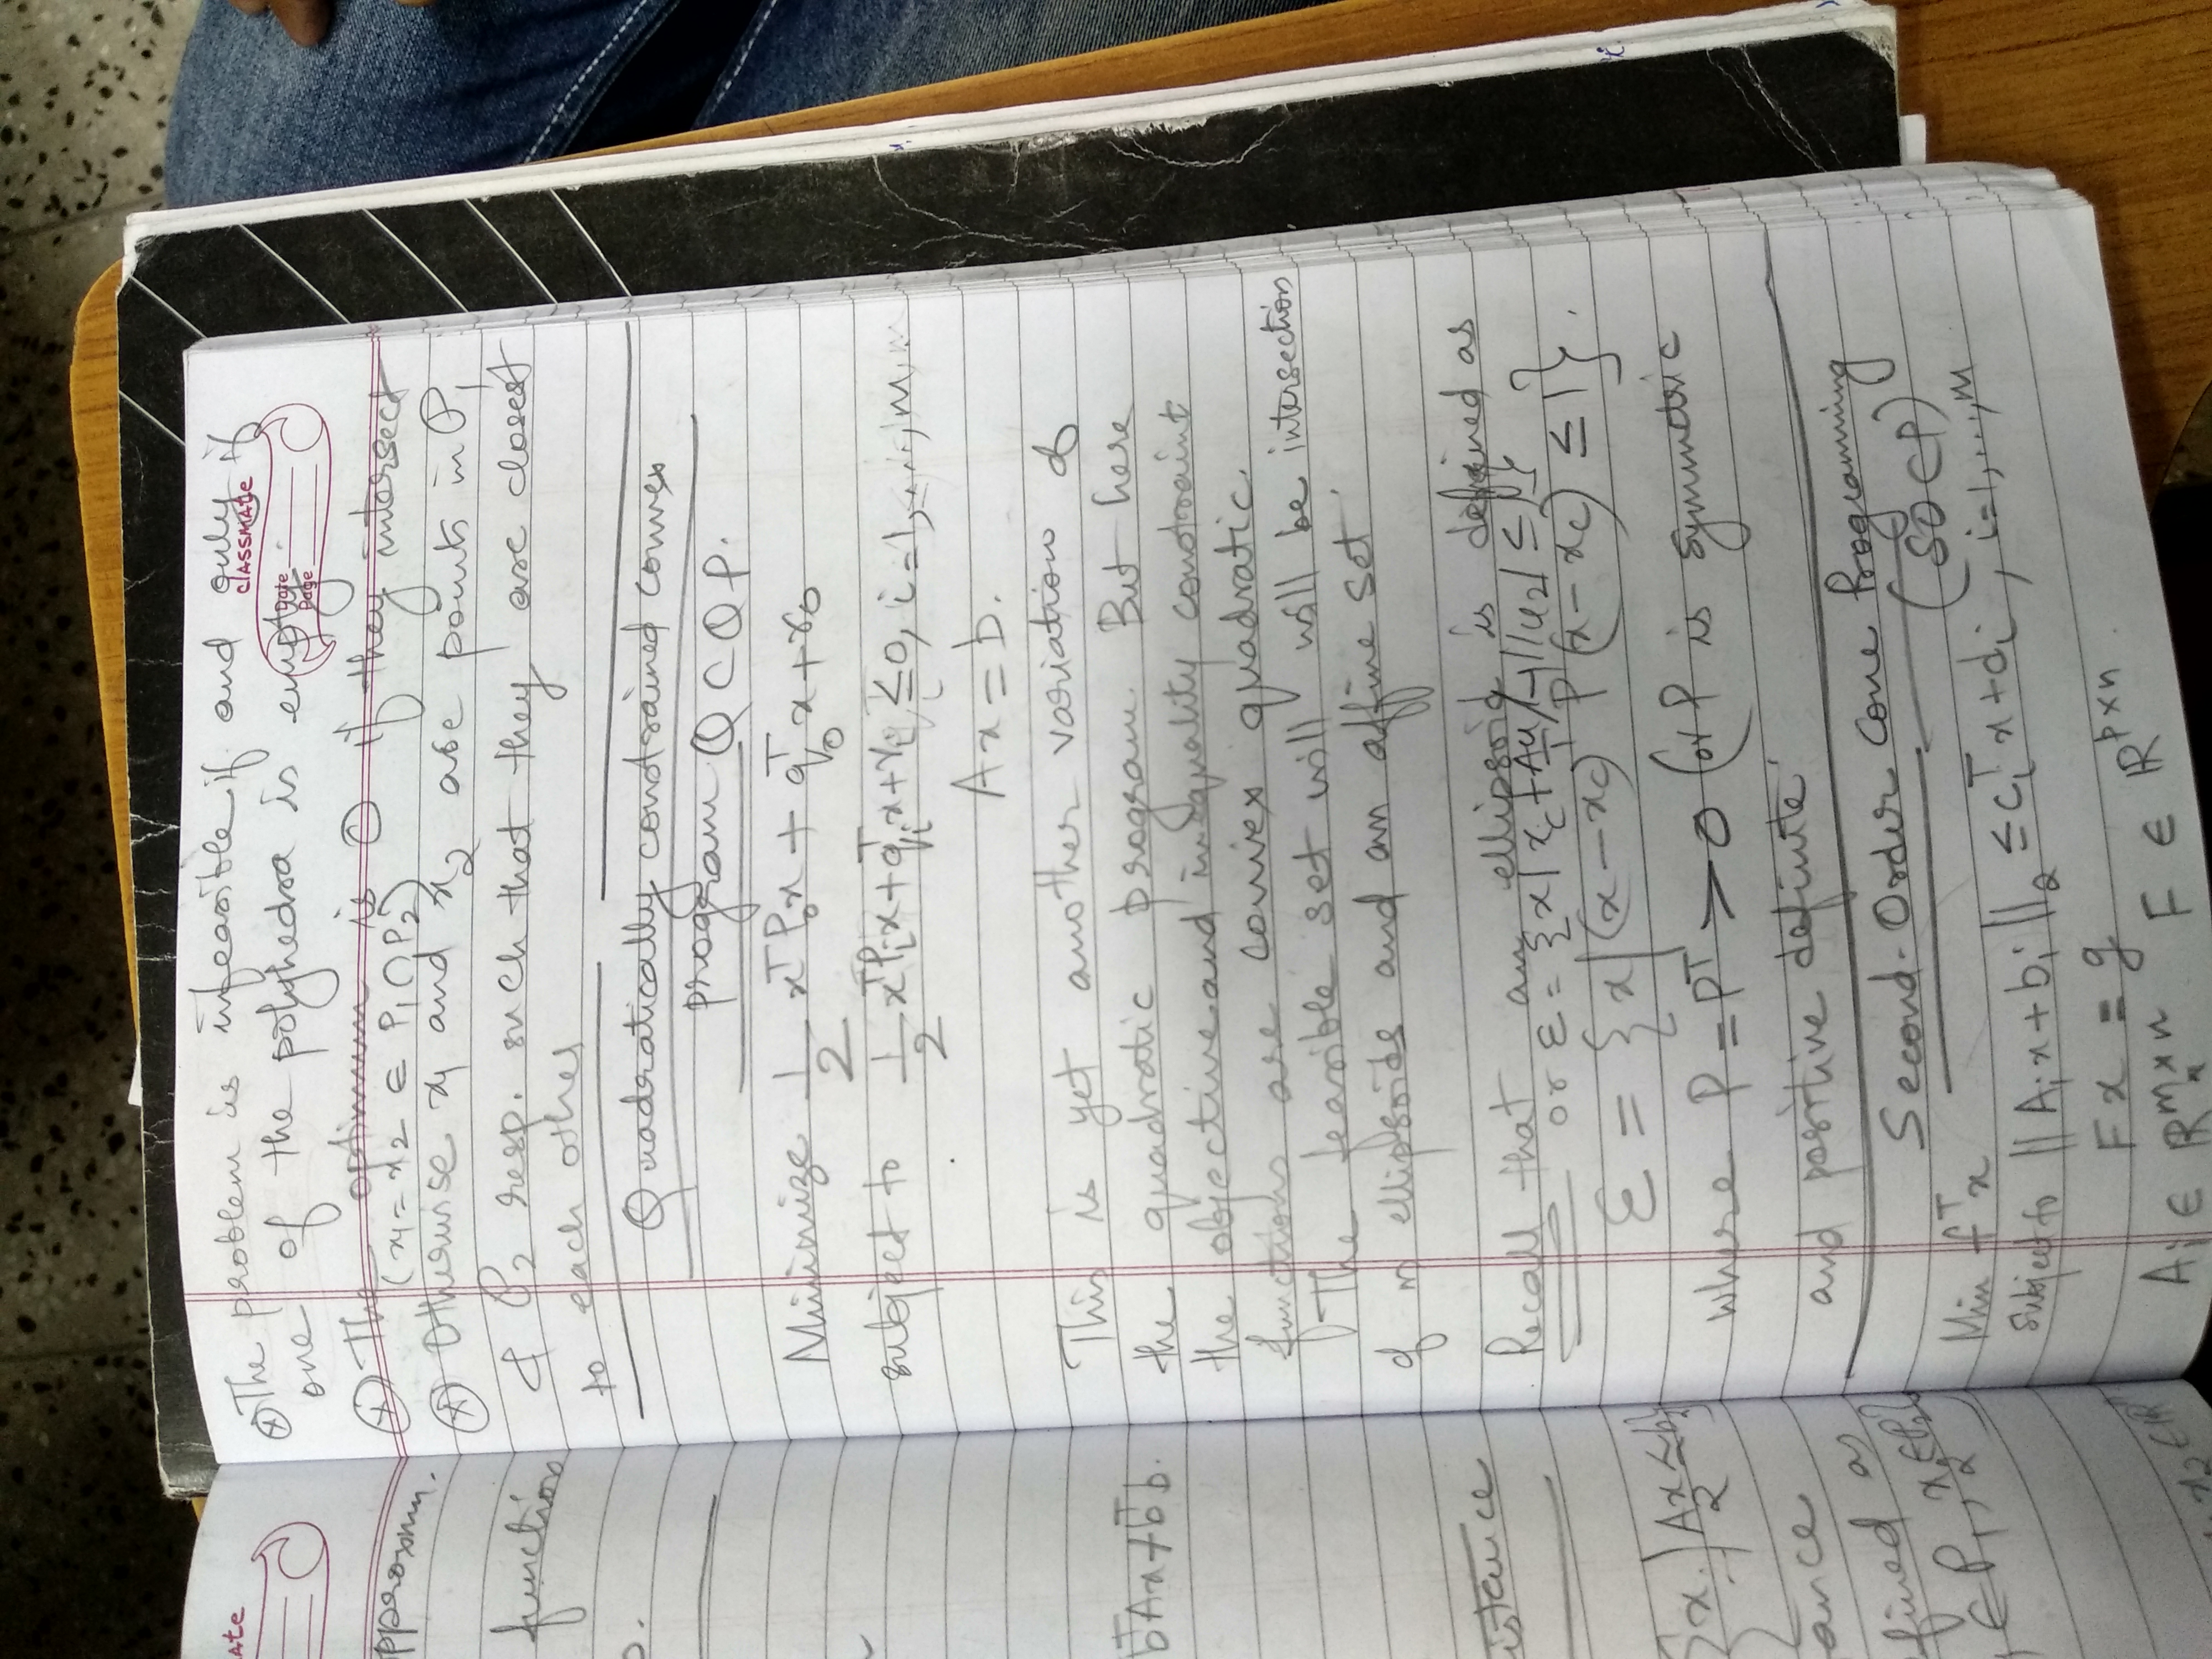 ATe
pproxm.
function
o.
bᵀAx + bᵀb.
istance
{x | Ax ≤ b}
2
ance
efined as
∈ P₁, x₂ ∈ P₂}
x₂ ∈ ℝⁿ
classmate
Date
Page
⊗ The problem is infeasible if and only if
one of the polyhedra is empty
⊗ The optimum is 0 if they intersect
(x₁ = x₂ ∈ P₁ ∩ P₂)
⊗ Otherwise x₁ and x₂ are points in P₁
& P₂ resp. such that they are closest
to each other
Quadratically constrained convex
program QCQP.
Minimize 1/2 xᵀP₀x + q₀ᵀx + r₀
subject to 1/2 xᵀPᵢx + qᵢᵀx + rᵢ ≤ 0, i = 1, ...., m.
Ax = b.
This is yet another variation of
the quadratic program. But here
the objective and inequality constraint
functions are convex quadratic.
The feasible set will will be intersection
of m ellipsoids and an affine set
Recall that an ellipsoid is defined as
or ε = {x | x_c + Au / ||u₂| ≤ 1}
ε = {x | (x − x_c)ᵀ P (x − x_c) ≤ 1}.
where P = Pᵀ > 0 (or P is symmetric
and positive definite
Second-Order Cone Programming
(SOCP)
Min fᵀx
Subject to ||Aᵢx + bᵢ||₂ ≤ cᵢᵀx + dᵢ, i=1,...,m
Fx = g
Aᵢ ∈ ℝᵐˣⁿ F ∈ ℝᵖˣⁿ.